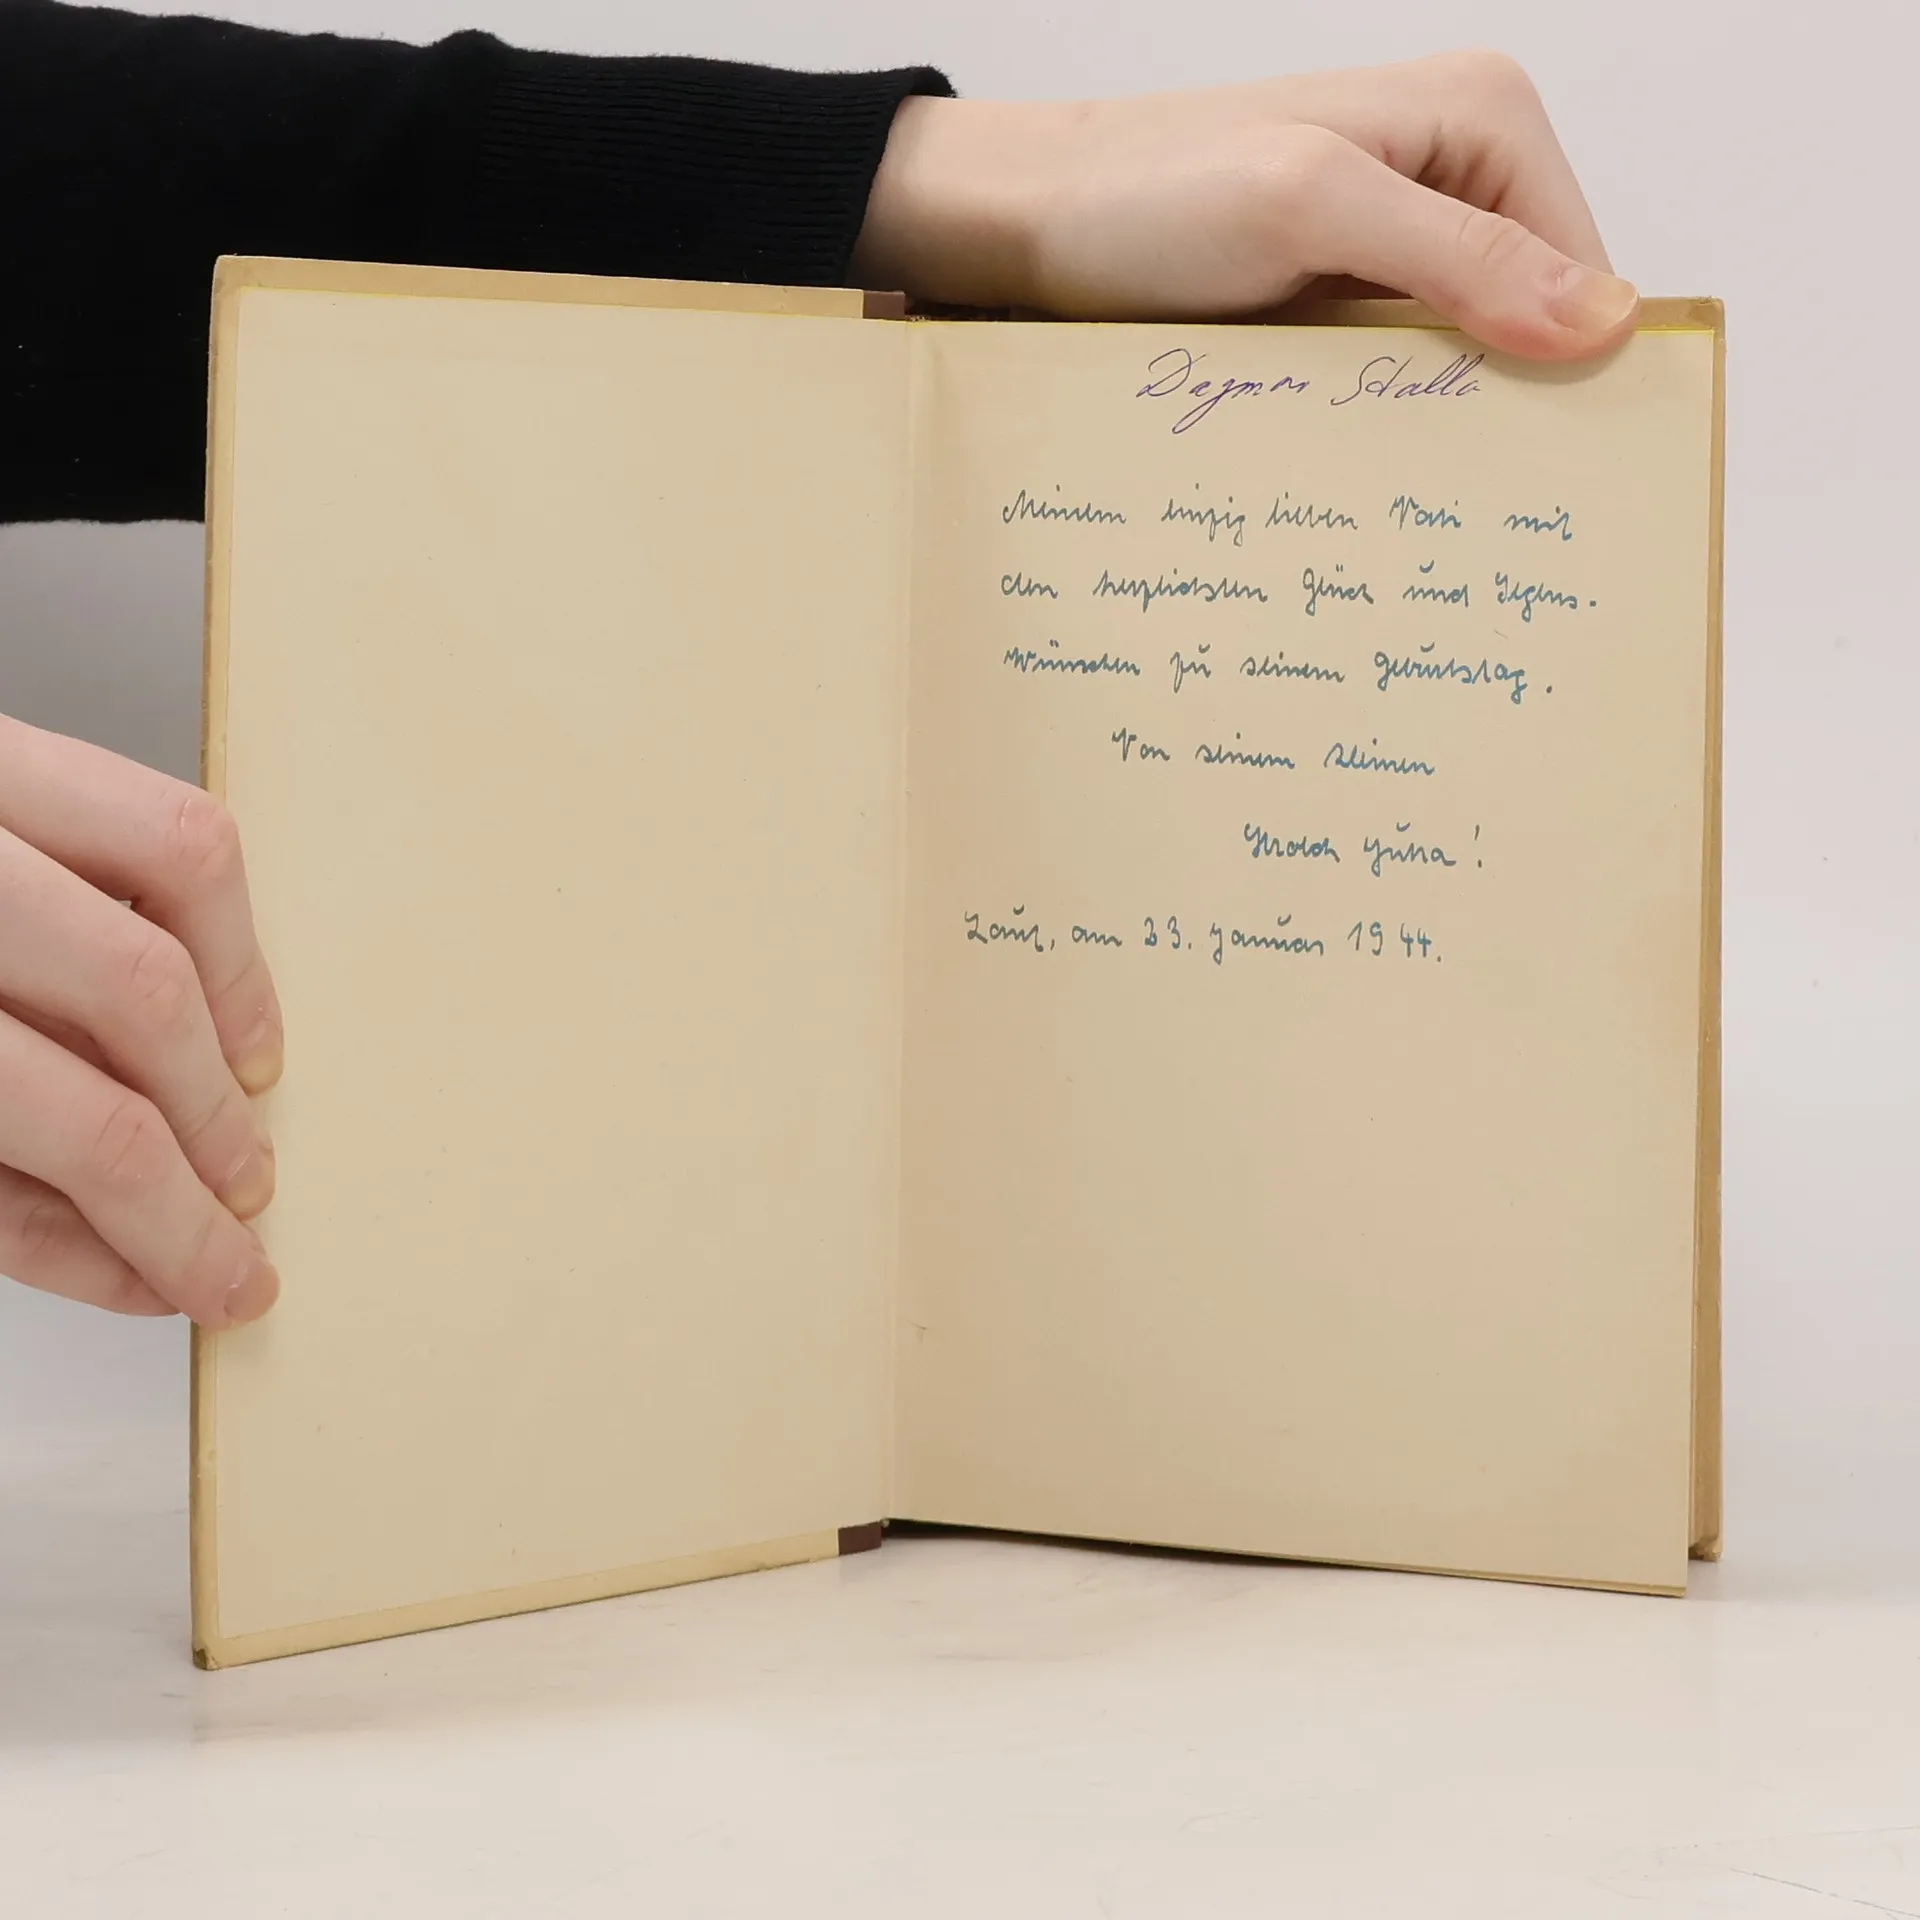 Dagmar Stalla
Meinem einzig lieben Vati mit
den herzlichsten Glück und Segens-
wünschen zu seinem Geburtstag.
Von seinem kleinen
Strolch Jutta!
am 23. Januar 1944.